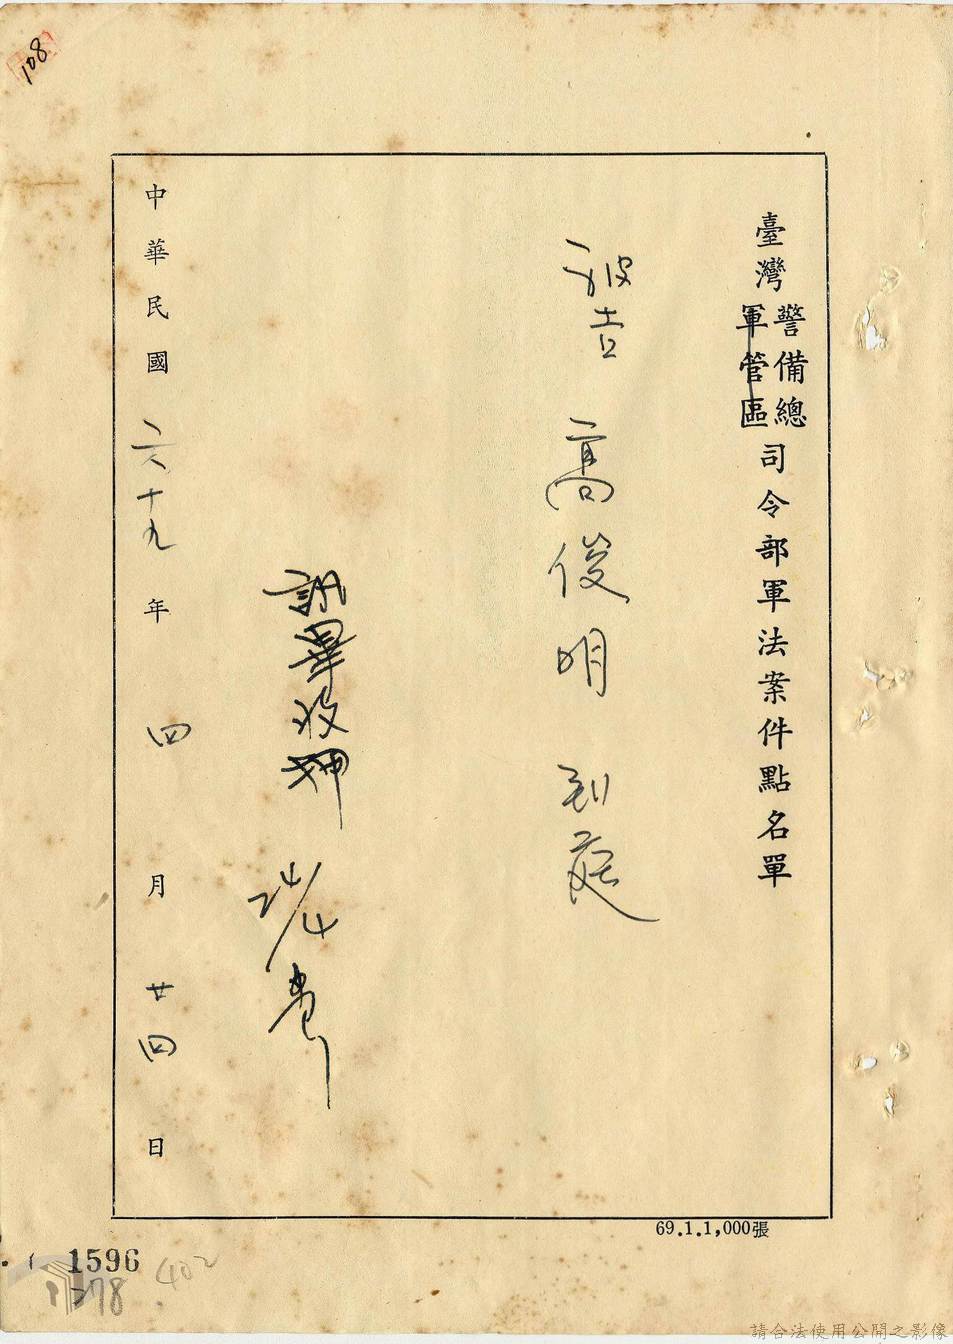 108
臺灣警備總軍管區司令部軍法案件點名單
被告 高俊明 到庭
訊畢收押
24/4
中華民國六十九年四月廿四日
69.1.1,000張
1596
278
402
請合法使用公開之影像